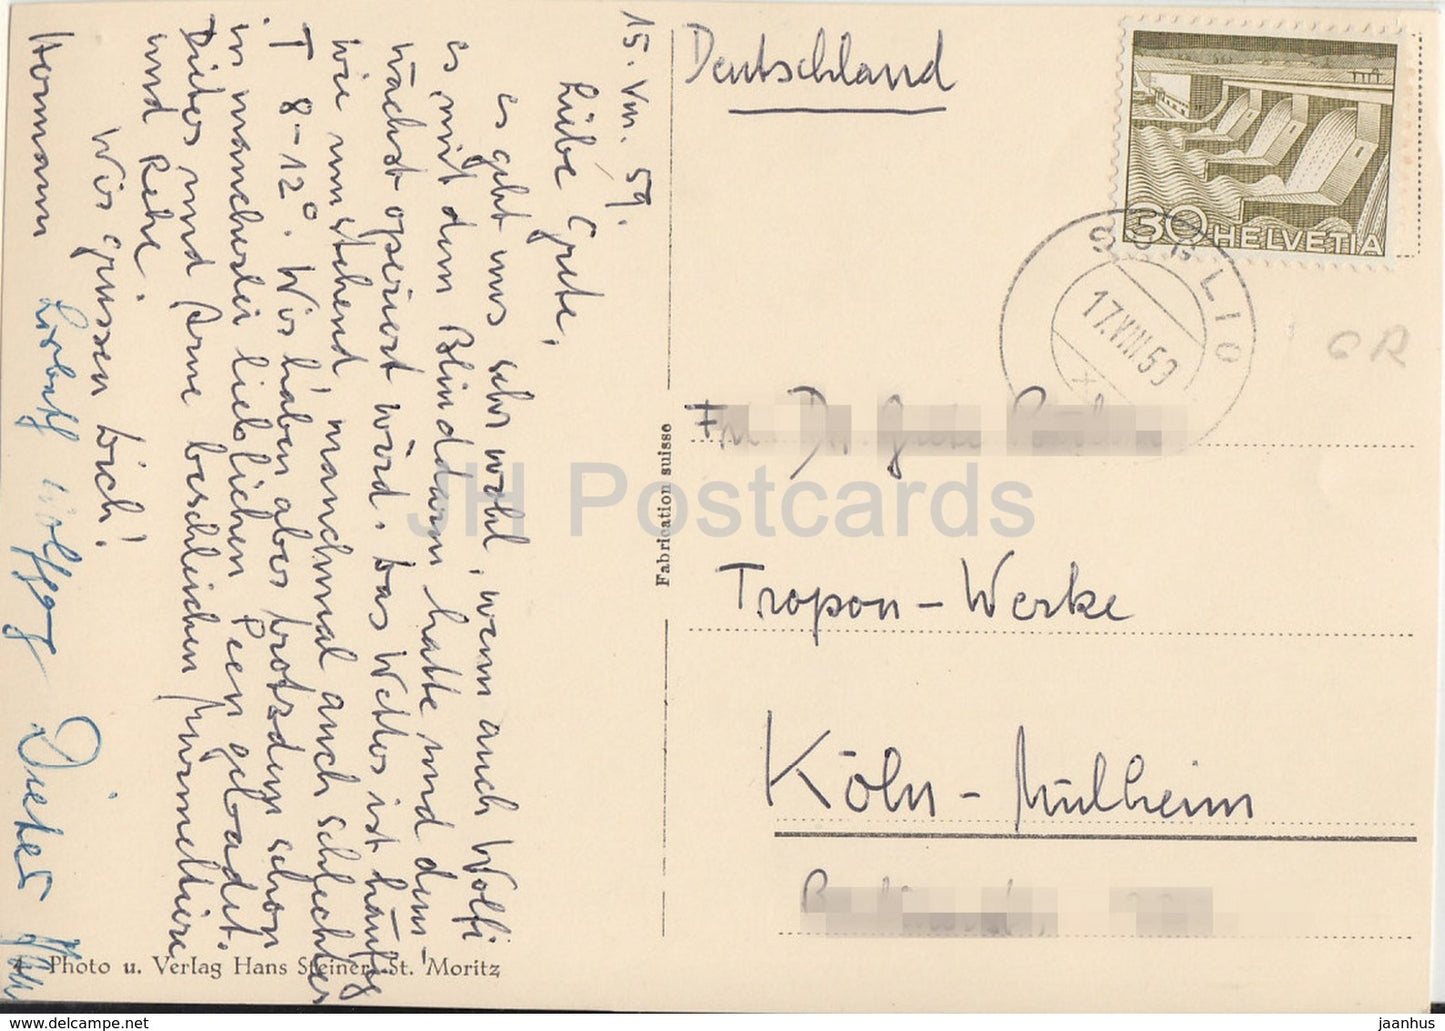 15. VIII. 59.
Liebe Grete,
es geht uns sehr wohl, wenn auch Wolfi
es mit dem Blinddarm hatte und dem-
nächst operiert wird. Das Wetter ist häufig
wie umstehend, manchmal auch schlechter
T 8-12°. Wir haben aber trotzdem schon
in mancherlei lieblichen Seen gebadet.
Dieter und Arne beschleichen Murmeltiere
und Rehe.
Wir grüssen Dich!
Hermann Liesbeth Wolfgang Dieter
4 Photo u. Verlag Hans Steiner, St. Moritz
Fabrication suisse
Deutschland
30 HELVETIA
SOGLIO
17.VIII.59
GR
Dr. Grete
Tropon-Werke
Köln-Mülheim
JH Postcards
www.delcampe.net
jaanhus